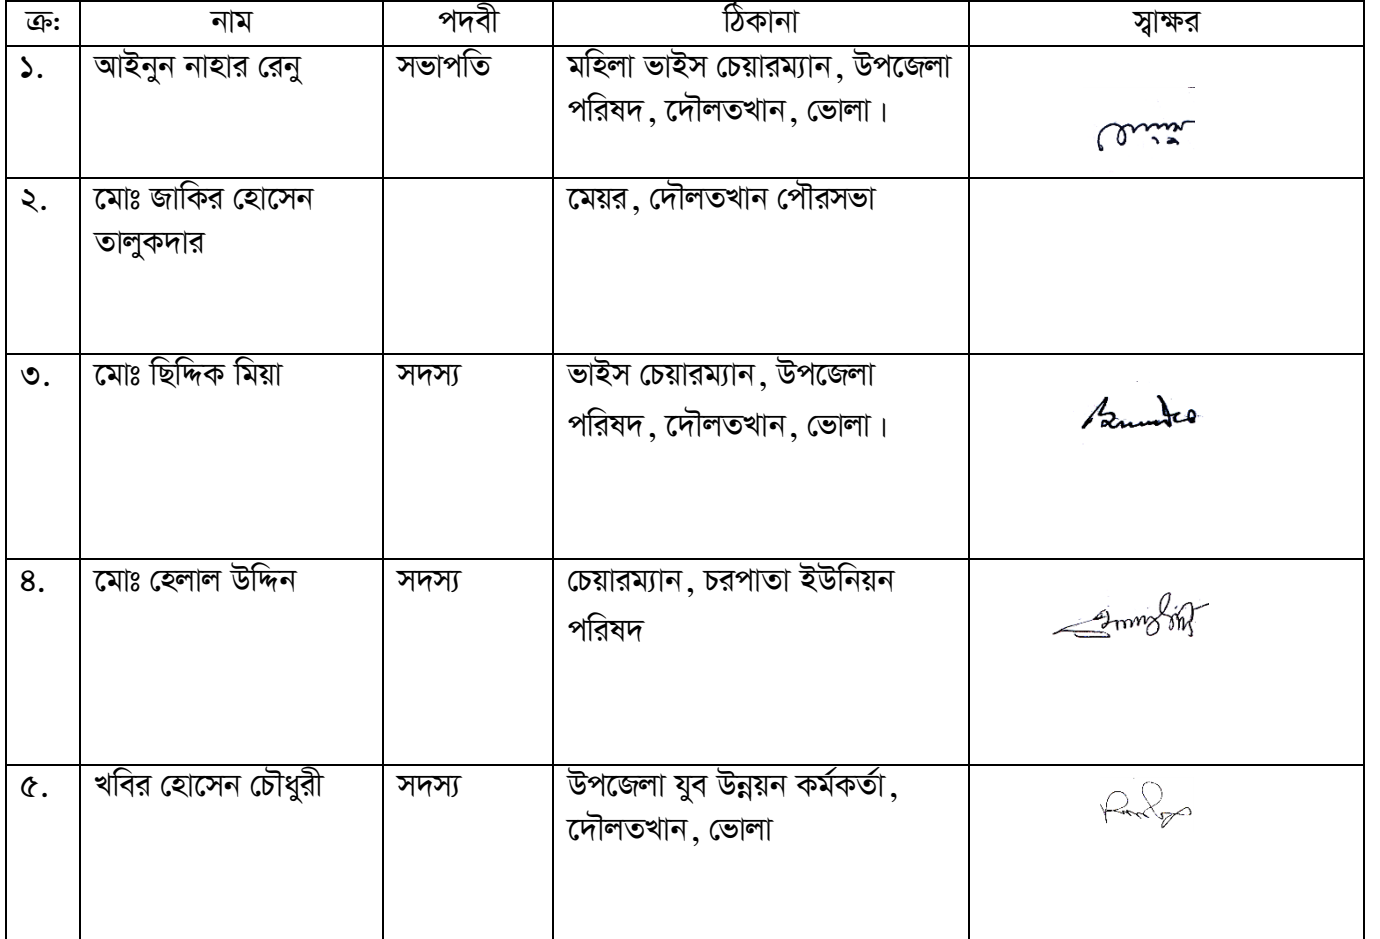 ক্র: নাম পদবী ঠিকানা স্বাক্ষর
১. আইনুন নাহার রেনু সভাপতি মহিলা ভাইস চেয়ারম্যান, উপজেলা
পরিষদ, দৌলতখান, ভোলা।
২. মোঃ জাকির হোসেন মেয়র, দৌলতখান পৌরসভা
তালুকদার
৩. মোঃ ছিদ্দিক মিয়া সদস্য ভাইস চেয়ারম্যান, উপজেলা
পরিষদ, দৌলতখান, ভোলা।
৪. মোঃ হেলাল উদ্দিন সদস্য চেয়ারম্যান, চরপাতা ইউনিয়ন
পরিষদ
৫. খবির হোসেন চৌধুরী সদস্য উপজেলা যুব উন্নয়ন কর্মকর্তা,
দৌলতখান, ভোলা